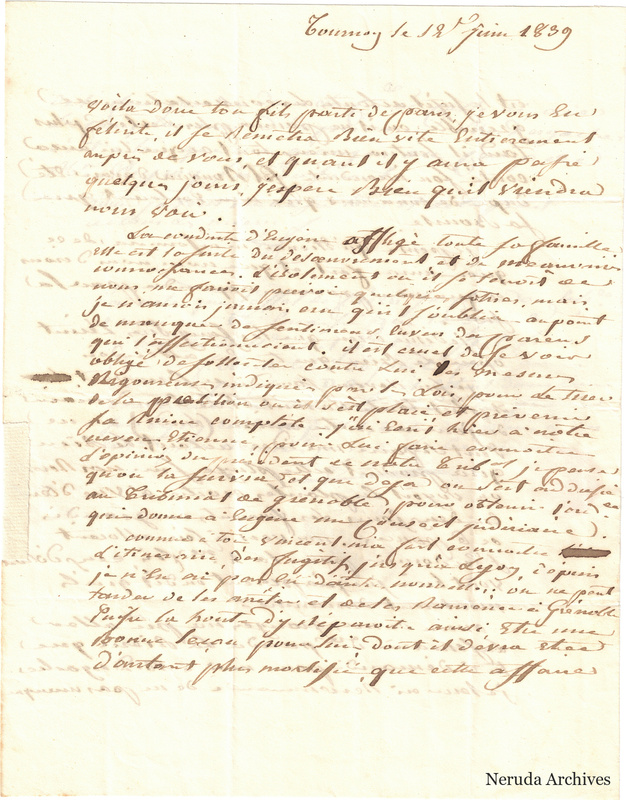 Tournon le 12 Juin 1839
Voilà donc ton fils parti de paris, je vous en
félicite, il se remettra Bien vite Entièrement
auprès de vous, et quant il y aura passé
quelques jours, j'espère Bien qu'il viendra
nous voir.
La conduite d'Eugène afflige toute sa famille
Elle est la suite du désoeuvrement et de mauvaises
connoissances. L'isolement où il se tenoit de
nous me faisoit prévoir quelques sotises, mais
je n'aurois jamais cru qu'il s'oublia au point
de manquer de sentimens Envers des parens
qui l'affectionnoient. il est cruel de se voir
obligé de solliciter contre Lui des mesures
Rigoureuses indiquées par la Loi, pour le tirer
de la position où il s'est placé et prévenir
sa Ruine complète. j'ai Ecrit hier à notre
neveu Etienne, pour Lui faire connoitre
l'opinion du président de notre Trib.al je pense
qu'on la suivra et que déja on s'est addressé
au Tribunal de grenoble, pour obtenir
qu'on donne à Eugène un Conseil judiciaire.
comme à toi vincent m'a fait connoitre
l'itinéraire des fugitifs, jusqu'à Lyon, depuis
je n'En ai pas eu d'autres nouvelles; on ne peut
tarder de les arrêter et de les Ramener à Grenoble
Puisse la honte d'y reparoitre ainsi Etre une
bonne Leçon pour lui, dont il devra Etre
d'autant plus mortifié, que cette affaire
Neruda Archives